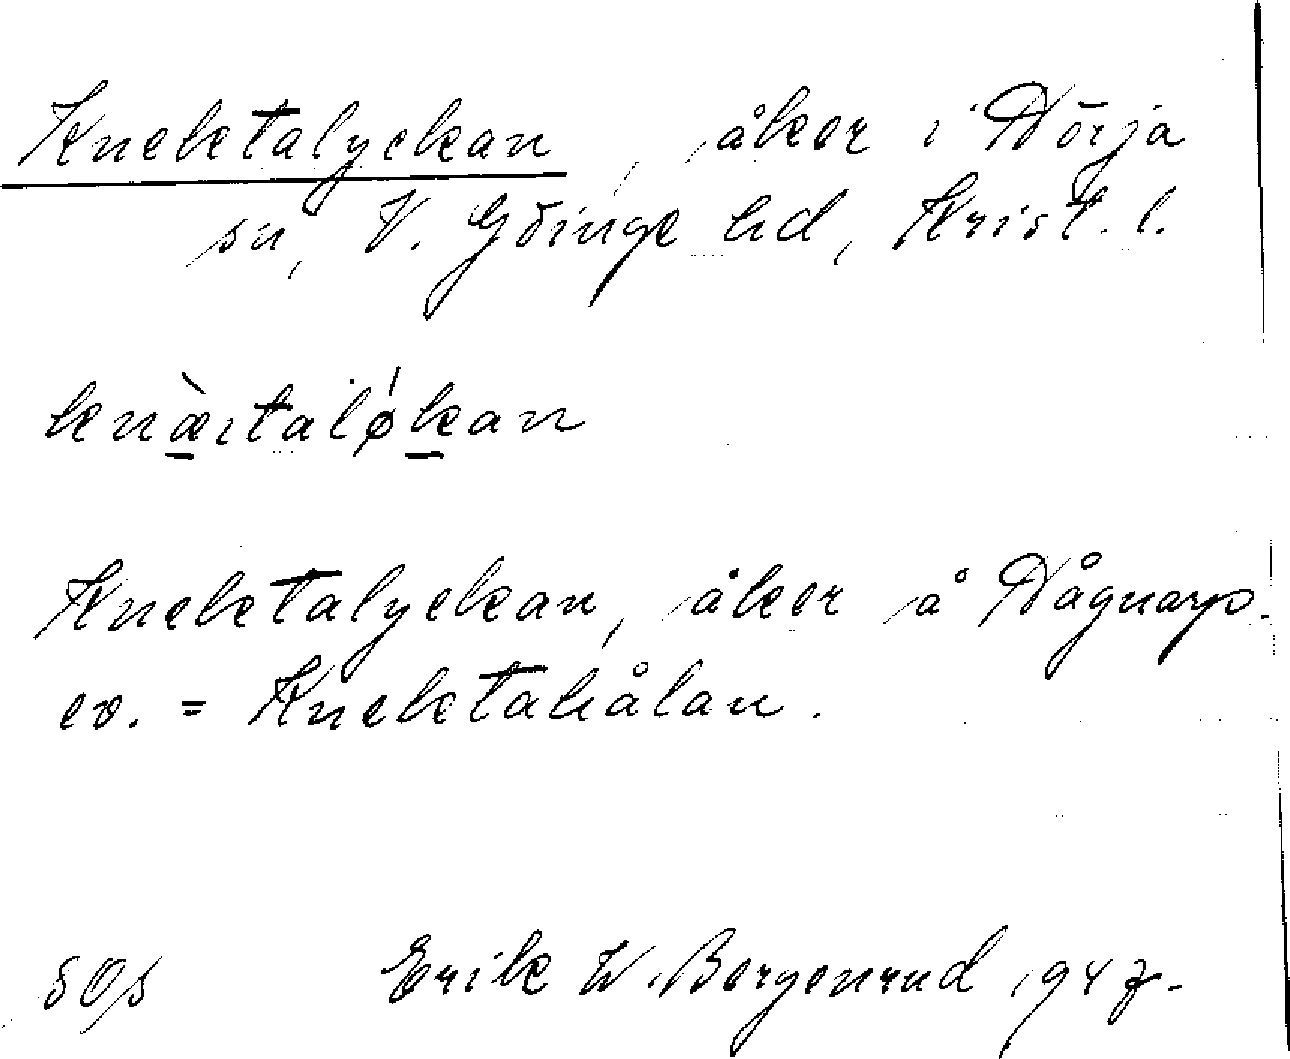 Knektalyckan, åker i Hörja
sn, V. Göinge hd, Krist. l.
knæ̀ıtaløkan
Knektalyckan, åker å Hågnarp.
ev. = Knektahålan.
Erik W. Bergenrud 1947.